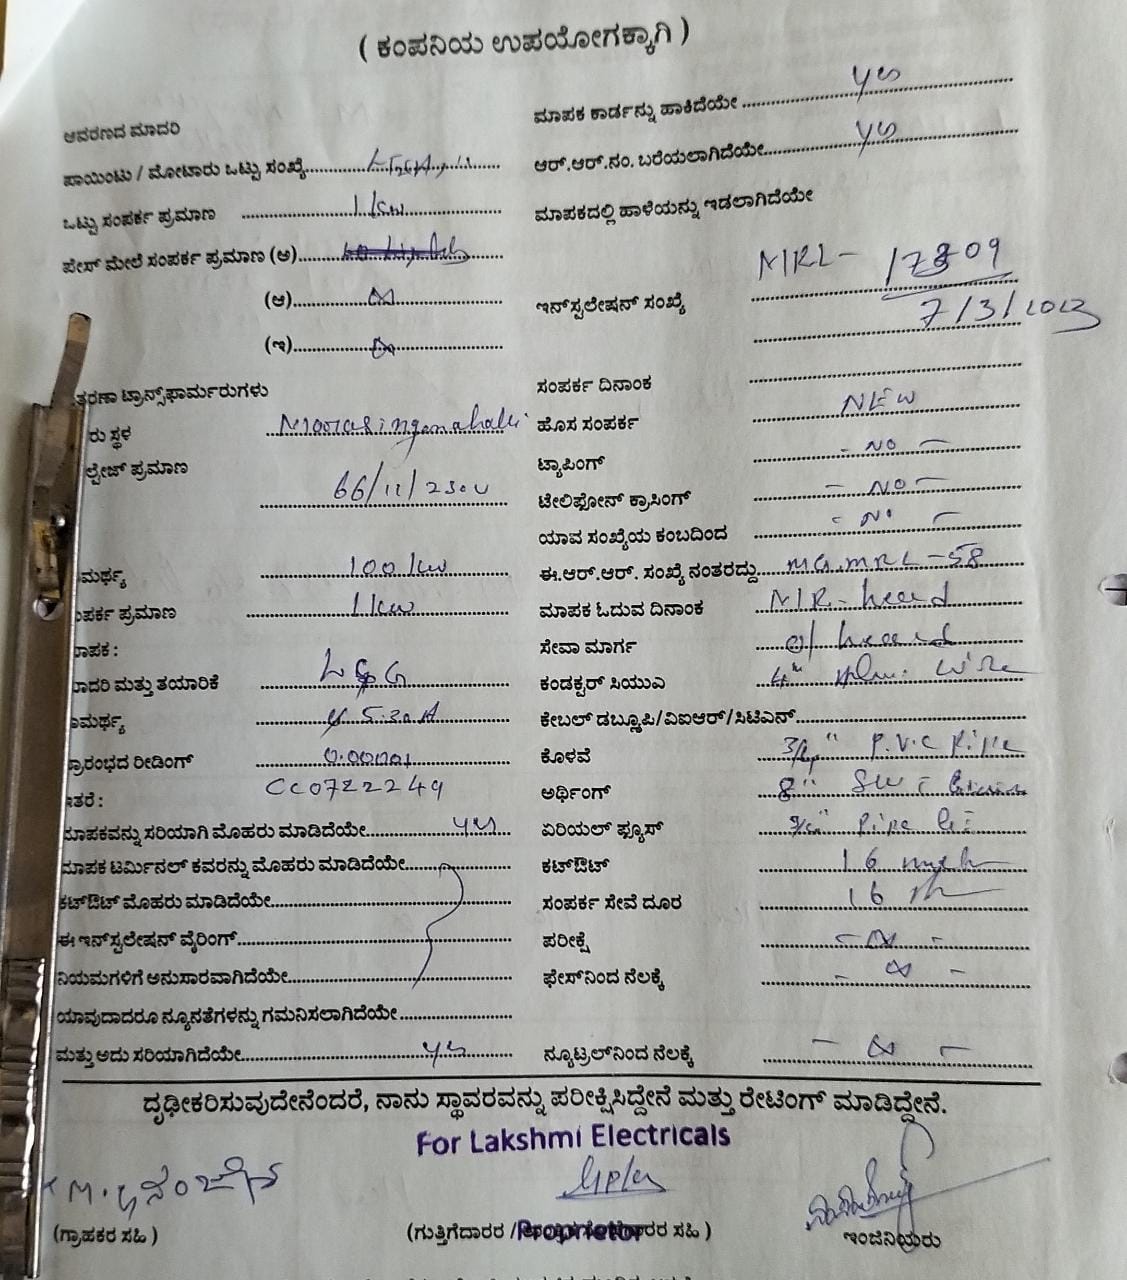 ( ಕಂಪನಿಯ ಉಪಯೋಗಕ್ಕಾಗಿ )
ಆವರಣದ ಮಾದರಿ
ಮಾಪಕ ಕಾರ್ಡನ್ನು ಹಾಕಿದೆಯೇ yes
ಪಾಯಿಂಟು / ಮೋಟಾರು ಒಟ್ಟು ಸಂಖ್ಯೆ
ಆರ್.ಆರ್.ನಂ. ಬರೆಯಲಾಗಿದೆಯೇ yes
ಒಟ್ಟು ಸಂಪರ್ಕ ಪ್ರಮಾಣ 1 kw
ಮಾಪಕದಲ್ಲಿ ಹಾಳೆಯನ್ನು ಇಡಲಾಗಿದೆಯೇ
ಫೇಸ್ ಮೇಲೆ ಸಂಪರ್ಕ ಪ್ರಮಾಣ (ಅ)
(ಆ)
ಇನ್‌ಸ್ಟಲೇಷನ್ ಸಂಖ್ಯೆ MRL-
7/3/2023
(ಇ)
ತರಣಾ ಟ್ರಾನ್ಸ್‌ಫಾರ್ಮರುಗಳು
ಸಂಪರ್ಕ ದಿನಾಂಕ
ರು ಸ್ಥಳ
ಹೊಸ ಸಂಪರ್ಕ NEW
ಲ್ಟೇಜ್ ಪ್ರಮಾಣ 66/11/230V
ಟ್ಯಾಪಿಂಗ್ - NO -
ಟೆಲಿಫೋನ್ ಕ್ರಾಸಿಂಗ್ - NO -
ಯಾವ ಸಂಖ್ಯೆಯ ಕಂಬದಿಂದ - NO -
ಮರ್ಥ್ಯ 100 kw
ಈ.ಆರ್.ಆರ್. ಸಂಖ್ಯೆ ನಂತರದ್ದು MG.MRL-58
ಂಪರ್ಕ ಪ್ರಮಾಣ 1 kw
ಮಾಪಕ ಓದುವ ದಿನಾಂಕ
ಾಪಕ :
ಸೇವಾ ಮಾರ್ಗ
ಾದರಿ ಮತ್ತು ತಯಾರಿಕೆ L&G
ಕಂಡಕ್ಟರ್ ಸಿಯುಎ
ಾಮರ್ಥ್ಯ 5.30A
ಕೇಬಲ್ ಡಬ್ಲೂಪಿ/ವಿಐಆರ್/ಸಿಟಿಎಸ್
ಪ್ರಾರಂಭದ ರೀಡಿಂಗ್
ಕೊಳವೆ 3/4" P.V.C Pipe
ಇತರೆ : CC0722249
ಅರ್ಥಿಂಗ್
ಮಾಪಕವನ್ನು ಸರಿಯಾಗಿ ಮೊಹರು ಮಾಡಿದೆಯೇ yes
ಏರಿಯಲ್ ಫ್ಯೂಸ್
ಮಾಪಕ ಟರ್ಮಿನಲ್ ಕವರನ್ನು ಮೊಹರು ಮಾಡಿದೆಯೇ
ಕಟ್‌ಔಟ್ 16
ಕಟ್‌ಔಟ್ ಮೊಹರು ಮಾಡಿದೆಯೇ
ಸಂಪರ್ಕ ಸೇವೆ ದೂರ 16
ಈ ಇನ್‌ಸ್ಟಲೇಷನ್ ವೈರಿಂಗ್
ಪರೀಕ್ಷೆ
ನಿಯಮಗಳಿಗೆ ಅನುಸಾರವಾಗಿದೆಯೇ
ಫೇಸ್‌ನಿಂದ ನೆಲಕ್ಕೆ
ಯಾವುದಾದರೂ ನ್ಯೂನತೆಗಳನ್ನು ಗಮನಿಸಲಾಗಿದೆಯೇ
ಮತ್ತು ಅದು ಸರಿಯಾಗಿದೆಯೇ yes
ನ್ಯೂಟ್ರಲ್‌ನಿಂದ ನೆಲಕ್ಕೆ
ದೃಢೀಕರಿಸುವುದೇನೆಂದರೆ, ನಾನು ಸ್ಥಾವರವನ್ನು ಪರೀಕ್ಷಿಸಿದ್ದೇನೆ ಮತ್ತು ರೇಟಿಂಗ್ ಮಾಡಿದ್ದೇನೆ.
For Lakshmi Electricals
(ಗ್ರಾಹಕರ ಸಹಿ )
(ಗುತ್ತಿಗೆದಾರರ / Proprietor ಸಹಿ )
ಇಂಜಿನಿಯರು